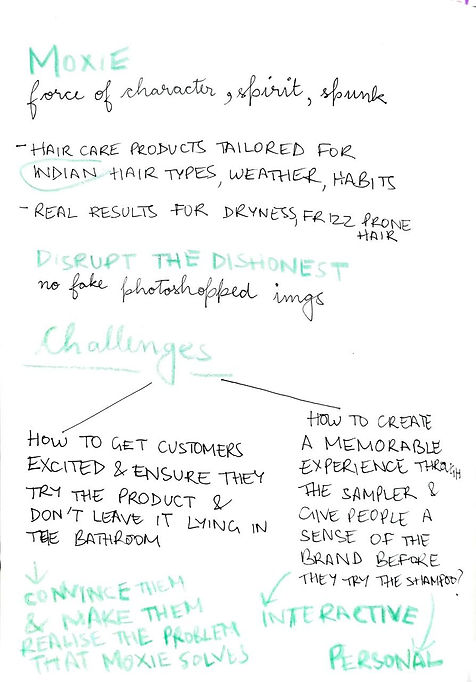 MOXIE
force of character, spirit, spunk
- HAIR CARE PRODUCTS TAILORED FOR
INDIAN HAIR TYPES, WEATHER, HABITS
- REAL RESULTS FOR DRYNESS, FRIZZ PRONE
HAIR
DISRUPT THE DISHONEST
no fake photoshopped imgs
Challenges
HOW TO GET CUSTOMERS
EXCITED & ENSURE THEY
TRY THE PRODUCT &
DON'T LEAVE IT LYING IN
THE BATHROOM
CONVINCE THEM
& MAKE THEM
REALISE THE PROBLEM
THAT MOXIE SOLVES
HOW TO CREATE
A MEMORABLE
EXPERIENCE THROUGH
THE SAMPLER &
GIVE PEOPLE A
SENSE OF THE
BRAND BEFORE
THEY TRY THE SHAMPOO?
INTERACTIVE
PERSONAL